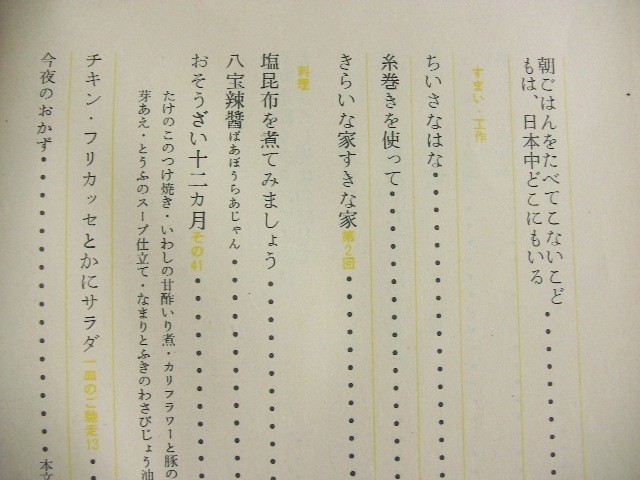 朝ごはんをたべてこないこど
もは、日本中どこにもいる
すまい・工作
ちいさなはな
糸巻きを使って
きらいな家すきな家 第2回
料理
塩昆布を煮てみましょう
八宝辣醬ばあぼうらあじゃん
おそうざい十二カ月 その41
たけのこのつけ焼き・いわしの甘酢いり煮・カリフラワーと豚の
芽あえ・とうふのスープ仕立て・なまりとふきのわさびじょう油
チキン・フリカッセとかにサラダ 一皿のご馳走13
今夜のおかず
本文